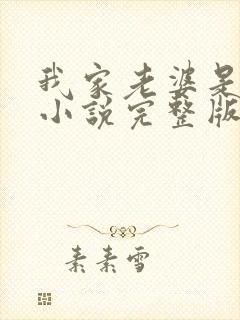 我家老婆是
小説完整版
素素雪